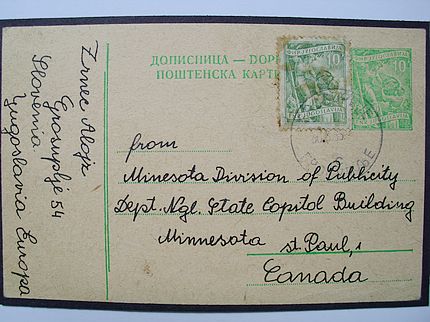 ДОПИСНИЦА — DOPI
ПОШТЕНСКА КАРТ
ФНР ЈУГОСЛАВИЈА
10
10
Zrnec Alojz
Grosuplje 54
Slovenia
Yugoslavia Europa
from
Minnesota Division of Publicity
Dept. Ngl. State Capitol Building
Minnesota st. Paul, 1
Canada